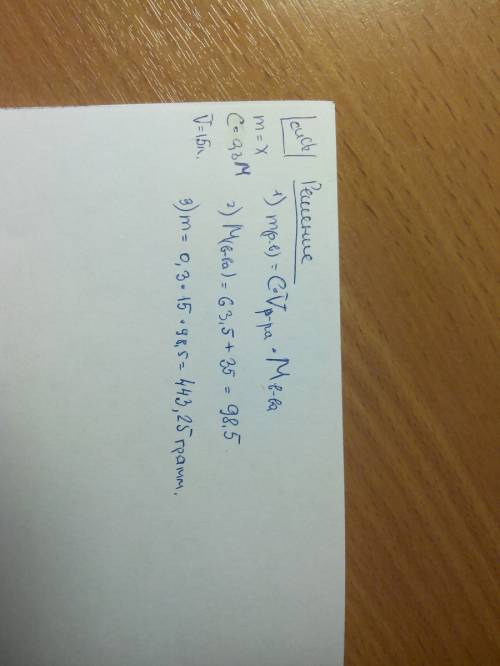 Решение
m = x
C = 0,3 M
V = 15л.
1) m(р.в) = C • Vр-ра • Mв-ва
2) M(в-ва) = 63,5 + 35 = 98,5.
3) m = 0,3 • 15 • 98,5 = 443,25 грамм.